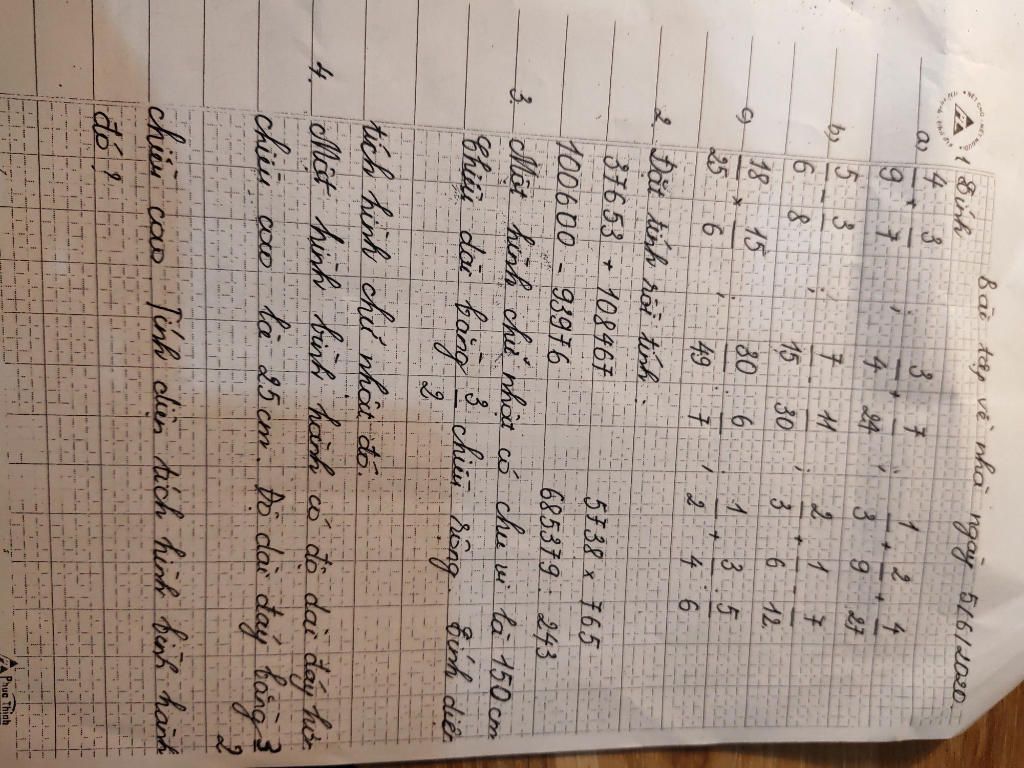 Bài tập về nhà ngày 5/6/2020.
1 Tính
a) 4/9 + 3/7 ; 3/4 + 7/24 ; 1/3 + 2/9 + 4/27
b) 5/6 - 3/8 ; 7/15 - 11/30 ; 2/3 + 1/6 - 7/12
c) 18/25 × 15/6 ; 80/49 : 6/7 ; 1/2 + 3/4 : 5/6
2. Đặt tính rồi tính:
37653 + 108467 5738 × 765
100600 - 93976 685379 : 243
3. Một hình chữ nhật có chu vi là 150cm
Chiều dài bằng 3/2 chiều rộng. Tính diện
tích hình chữ nhật đó.
4. Một hình bình hành có độ dài đáy hơn
chiều cao là 25cm. Độ dài đáy bằng 3/2
chiều cao Tính diện tích hình bình hành
đó?
Phúc Thịnh